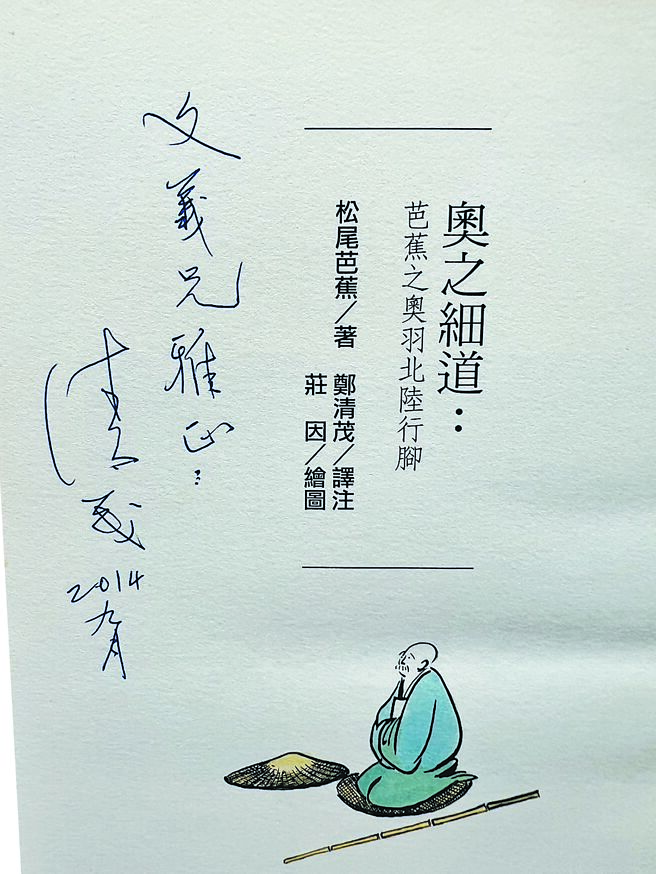 奧之細道：
芭蕉之奧羽北陸行腳
松尾芭蕉／著　鄭清茂／譯注
莊　因／繪圖
文義兄雅正：
清茂
2014
九月